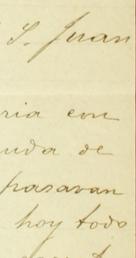 S. Juan
ria con
uda de
pasavan
hoy todo